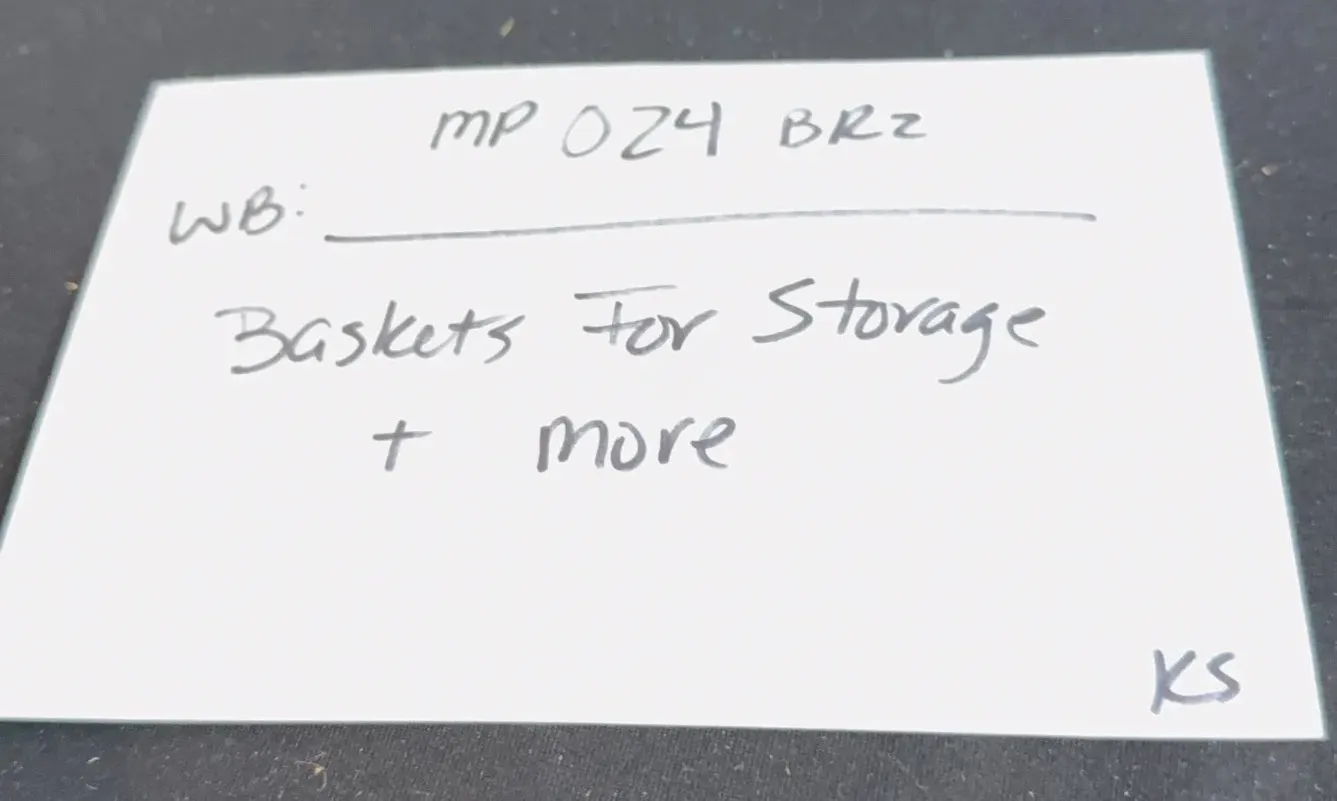 MP 024 BR2
WB: ____________________
Baskets For Storage
+ more
KS